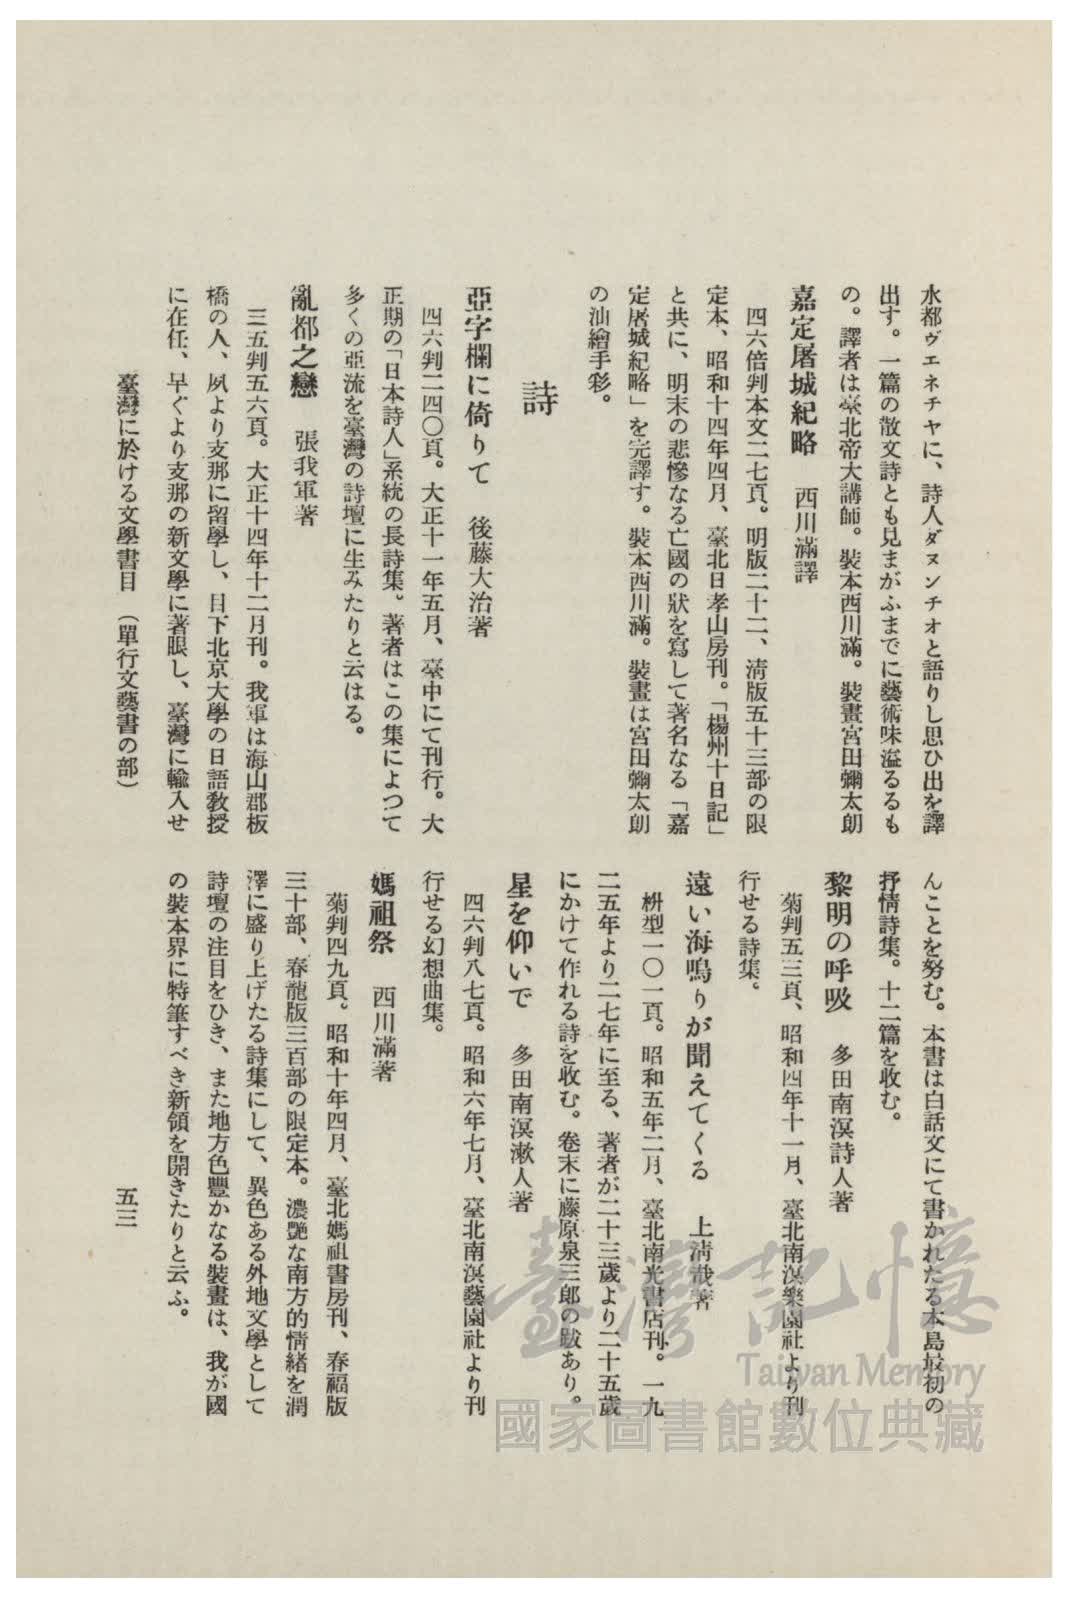 水都ヴエネチヤに、詩人ダヌンチオと語りし思ひ出を譯
出す。一篇の散文詩とも見まがふまでに藝術味溢るるも
の。譯者は臺北帝大講師。裝本西川滿。裝畫宮田彌太朗
嘉定屠城紀略　西川滿譯
四六倍判本文二七頁。明版二十二、淸版五十三部の限
定本、昭和十四年四月、臺北日孝山房刊。「楊州十日記」
と共に、明末の悲慘なる亡國の狀を寫して著名なる「嘉
定屠城紀略」を完譯す。裝本西川滿。裝畫は宮田彌太朗
の油繪手彩。
詩
亞字欄に倚りて　後藤大治著
四六判二四〇頁。大正十一年五月、臺中にて刊行。大
正期の「日本詩人」系統の長詩集。著者はこの集によつて
多くの亞流を臺灣の詩壇に生みたりと云はる。
亂都之戀　張我軍著
三五判五六頁。大正十四年十二月刊。我軍は海山郡板
橋の人、夙より支那に留學し、目下北京大學の日語敎授
に在任、早ぐより支那の新文學に著眼し、臺灣に輸入せ
んことを努む。本書は白話文にて書かれたる本島最初の
抒情詩集。十二篇を收む。
黎明の呼吸　多田南溟詩人著
菊判五三頁、昭和四年十一月、臺北南溟樂園社より刊
行せる詩集。
遠い海鳴りが聞えてくる　上淸哉著
枡型一〇一頁。昭和五年二月、臺北南光書店刊。一九
二五年より二七年に至る、著者が二十三歲より二十五歲
にかけて作れる詩を收む。卷末に藤原泉三郎の跋あり。
星を仰いで　多田南溟漱人著
四六判八七頁。昭和六年七月、臺北南溟藝園社より刊
行せる幻想曲集。
媽祖祭　西川滿著
菊判四九頁。昭和十年四月、臺北媽祖書房刊、春福版
三十部、春龍版三百部の限定本。濃艷な南方的情緒を潤
澤に盛り上げたる詩集にして、異色ある外地文學として
詩壇の注目をひき、また地方色豐かなる裝畫は、我が國
の裝本界に特筆すべき新領を開きたりと云ふ。
臺灣に於ける文學書目　（單行文藝書の部）
五三
臺灣記憶
Taiwan Memory
國家圖書館數位典藏